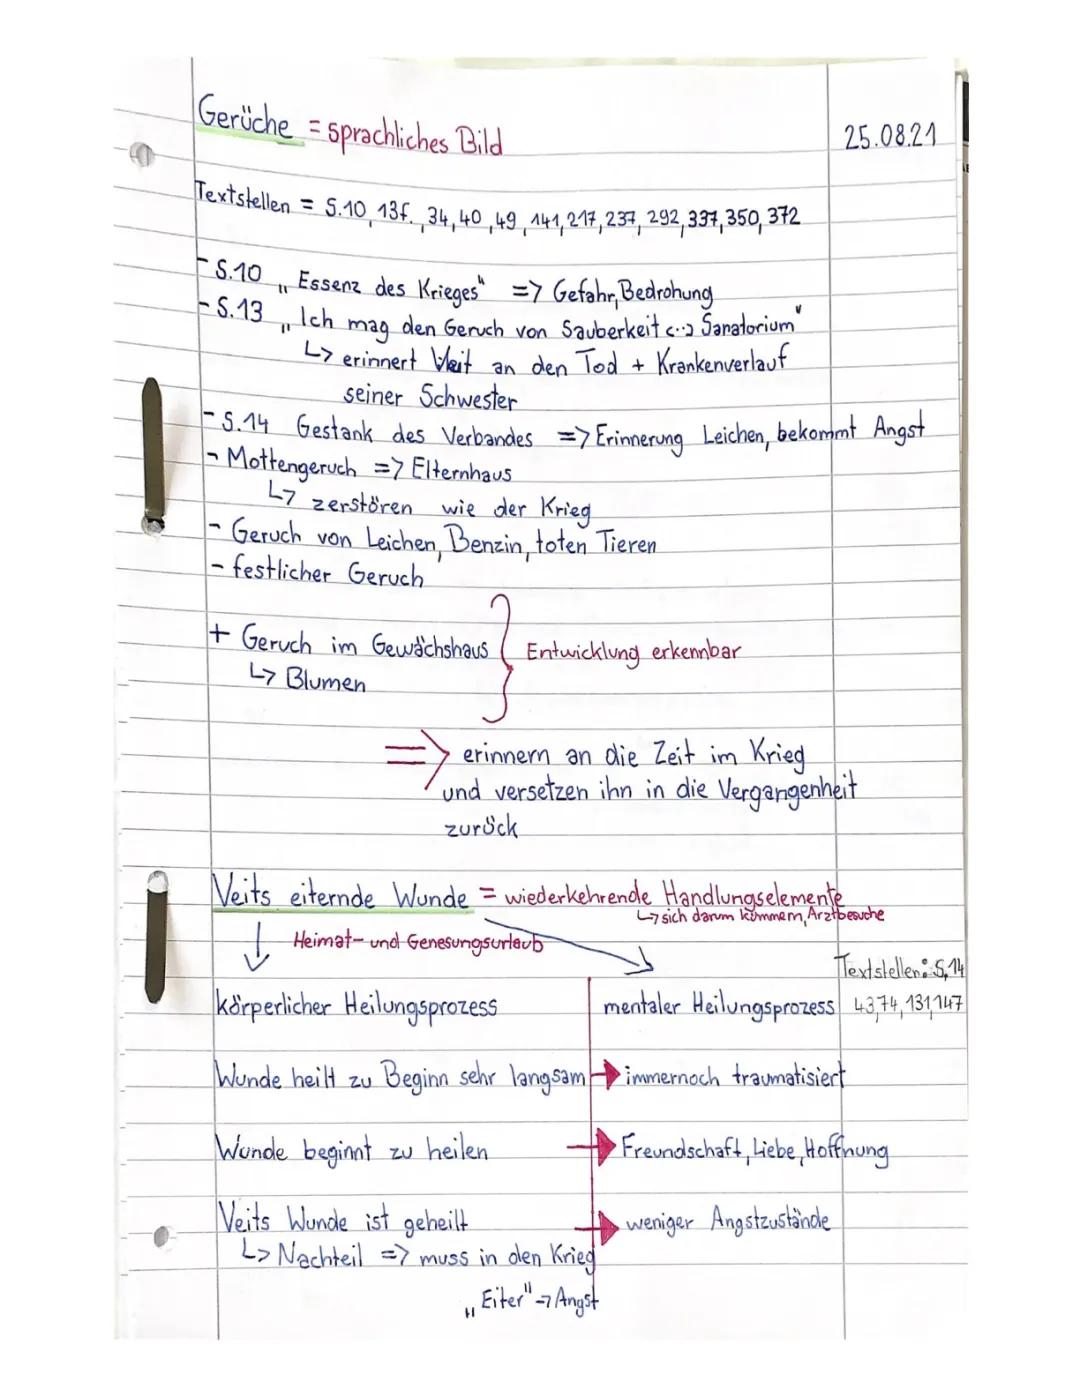 Gerüche = sprachliches Bild
25.08.21
Textstellen = S.10, 13f., 34, 40, 49, 141, 217, 237, 292, 337, 350, 372
- S.10 „Essenz des Krieges" => Gefahr, Bedrohung
- S.13 „Ich mag den Geruch von Sauberkeit <..> Sanatorium"
↳ erinnert Veit an den Tod + Krankenverlauf
seiner Schwester
- S.14 Gestank des Verbandes => Erinnerung Leichen, bekommt Angst
- Mottengeruch => Elternhaus
↳ zerstören wie der Krieg
- Geruch von Leichen, Benzin, toten Tieren
- festlicher Geruch
+ Geruch im Gewächshaus } Entwicklung erkennbar
↳ Blumen
=> erinnern an die Zeit im Krieg
und versetzen ihn in die Vergangenheit
zurück
Veits eiternde Wunde = wiederkehrende Handlungselemente
↳ sich darum kümmern, Arztbesuche
Heimat- und Genesungsurlaub
Textstellen: S.14
körperlicher Heilungsprozess mentaler Heilungsprozess 43,74,131,147
Wunde heilt zu Beginn sehr langsam → immernoch traumatisiert
Wunde beginnt zu heilen → Freundschaft, Liebe, Hoffnung
Veits Wunde ist geheilt → weniger Angstzustände
↳ Nachteil => muss in den Krieg
„Eiter" → Angst